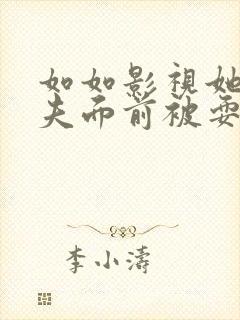 如如影視她
夫而前被要
李小濤